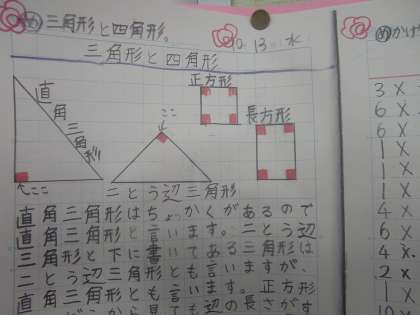 め 三角形と四角形。
10.13 水
三角形と四角形
正方形
直角三角形
ここ
長方形
ここ
二とう辺三角形
直角三角形はちょっかくがあるので
直角三角形と言います。二とう辺
三角形と下に書いてある三角形は
二とう辺三角形とも言いますが、
直角三角形とも言います。正方形
から見ても辺の長さがす
めかけ
3 ×
6 ×
6 ×
1 ×
1 ×
1 ×
4 ×
6 ×
4 ×
2 ×
1 ×